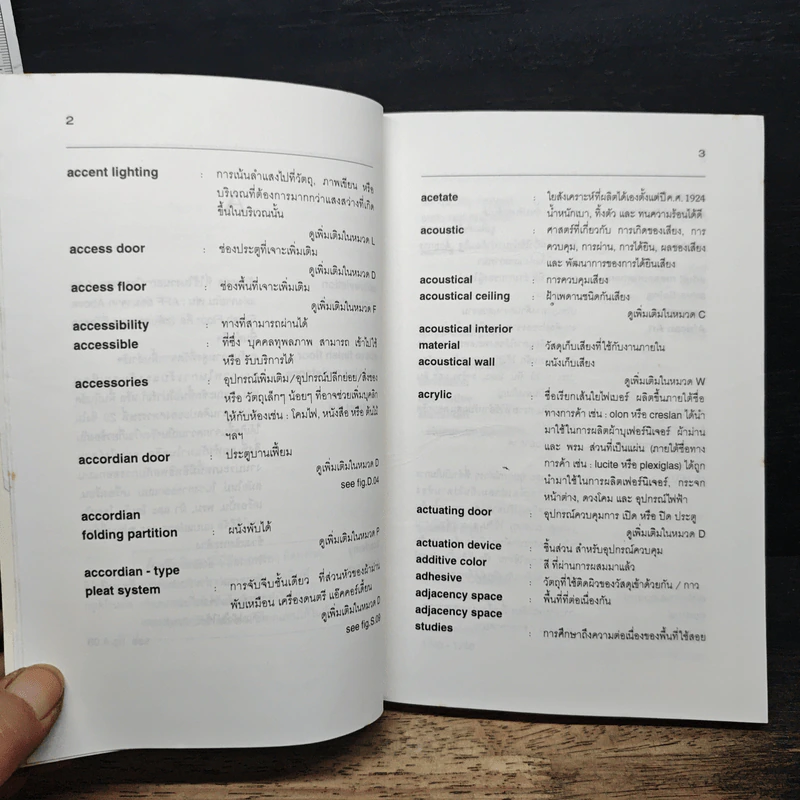 2
accent lighting : การเน้นลำแสงไปที่วัตถุ, ภาพเขียน หรือ
บริเวณที่ต้องการมากกว่าแสงสว่างที่เกิด
ขึ้นในบริเวณนั้น
ดูเพิ่มเติมในหมวด L
access door : ช่องประตูที่เจาะเพิ่มเติม
ดูเพิ่มเติมในหมวด D
access floor : ช่องพื้นที่เจาะเพิ่มเติม
ดูเพิ่มเติมในหมวด F
accessibility : ทางที่สามารถผ่านได้
accessible : ที่ซึ่ง บุคคลทุพลภาพ สามารถ เข้าไปใช้
หรือ รับบริการได้
accessories : อุปกรณ์เพิ่มเติม/อุปกรณ์ปลีกย่อย/สิ่งของ
หรือ วัตถุเล็กๆ น้อยๆ ที่อาจช่วยเพิ่มบุคลิก
ให้กับห้องเช่น : โคมไฟ, หนังสือ หรือ ต้นไม้
ฯลฯ
accordian door : ประตูบานเฟี้ยม
ดูเพิ่มเติมในหมวด D
see fig.D.04
accordian
folding partition : ผนังพับได้
ดูเพิ่มเติมในหมวด P
accordian - type
pleat system : การจับจีบชั้นเดียว ที่ส่วนหัวของผ้าม่าน
พับเหมือน เครื่องดนตรี แอ๊คคอร์เดี้ยน
ดูเพิ่มเติมในหมวด D
see fig.S.09
3
acetate : ใยสังเคราะห์ที่ผลิตได้เองตั้งแต่ปีค.ศ. 1924
น้ำหนักเบา, ทิ้งตัว และ ทนความร้อนได้ดี
acoustic : ศาสตร์ที่เกี่ยวกับ การเกิดของเสียง, การ
ควบคุม, การผ่าน, การได้ยิน, ผลของเสียง
และ พัฒนาการของการได้ยินเสียง
acoustical : การควบคุมเสียง
acoustical ceiling : ฝ้าเพดานชนิดกันเสียง
ดูเพิ่มเติมในหมวด C
acoustical interior
material : วัสดุเก็บเสียงที่ใช้กับงานภายใน
acoustical wall : ผนังเก็บเสียง
ดูเพิ่มเติมในหมวด W
acrylic : ชื่อเรียกเส้นใยไฟเบอร์ ผลิตขึ้นภายใต้ชื่อ
ทางการค้า เช่น : olon หรือ creslan ได้นำ
มาใช้ในการผลิตผ้าบุเฟอร์นิเจอร์ ผ้าม่าน
และ พรม ส่วนที่เป็นแผ่น (ภายใต้ชื่อทาง
การค้า เช่น : lucite หรือ plexiglas) ได้ถูก
นำมาใช้ในการผลิตเฟอร์นิเจอร์, กระจก
หน้าต่าง, ดวงโคม และ อุปกรณ์ไฟฟ้า
actuating door : อุปกรณ์ควบคุมการ เปิด หรือ ปิด ประตู
ดูเพิ่มเติมในหมวด D
actuation device : ชิ้นส่วน สำหรับอุปกรณ์ควบคุม
additive color : สี ที่ผ่านการผสมมาแล้ว
adhesive : วัตถุที่ใช้ติดผิวของวัสดุเข้าด้วยกัน / กาว
adjacency space : พื้นที่ที่ต่อเนื่องกัน
adjacency space
studies : การศึกษาถึงความต่อเนื่องของพื้นที่ใช้สอย